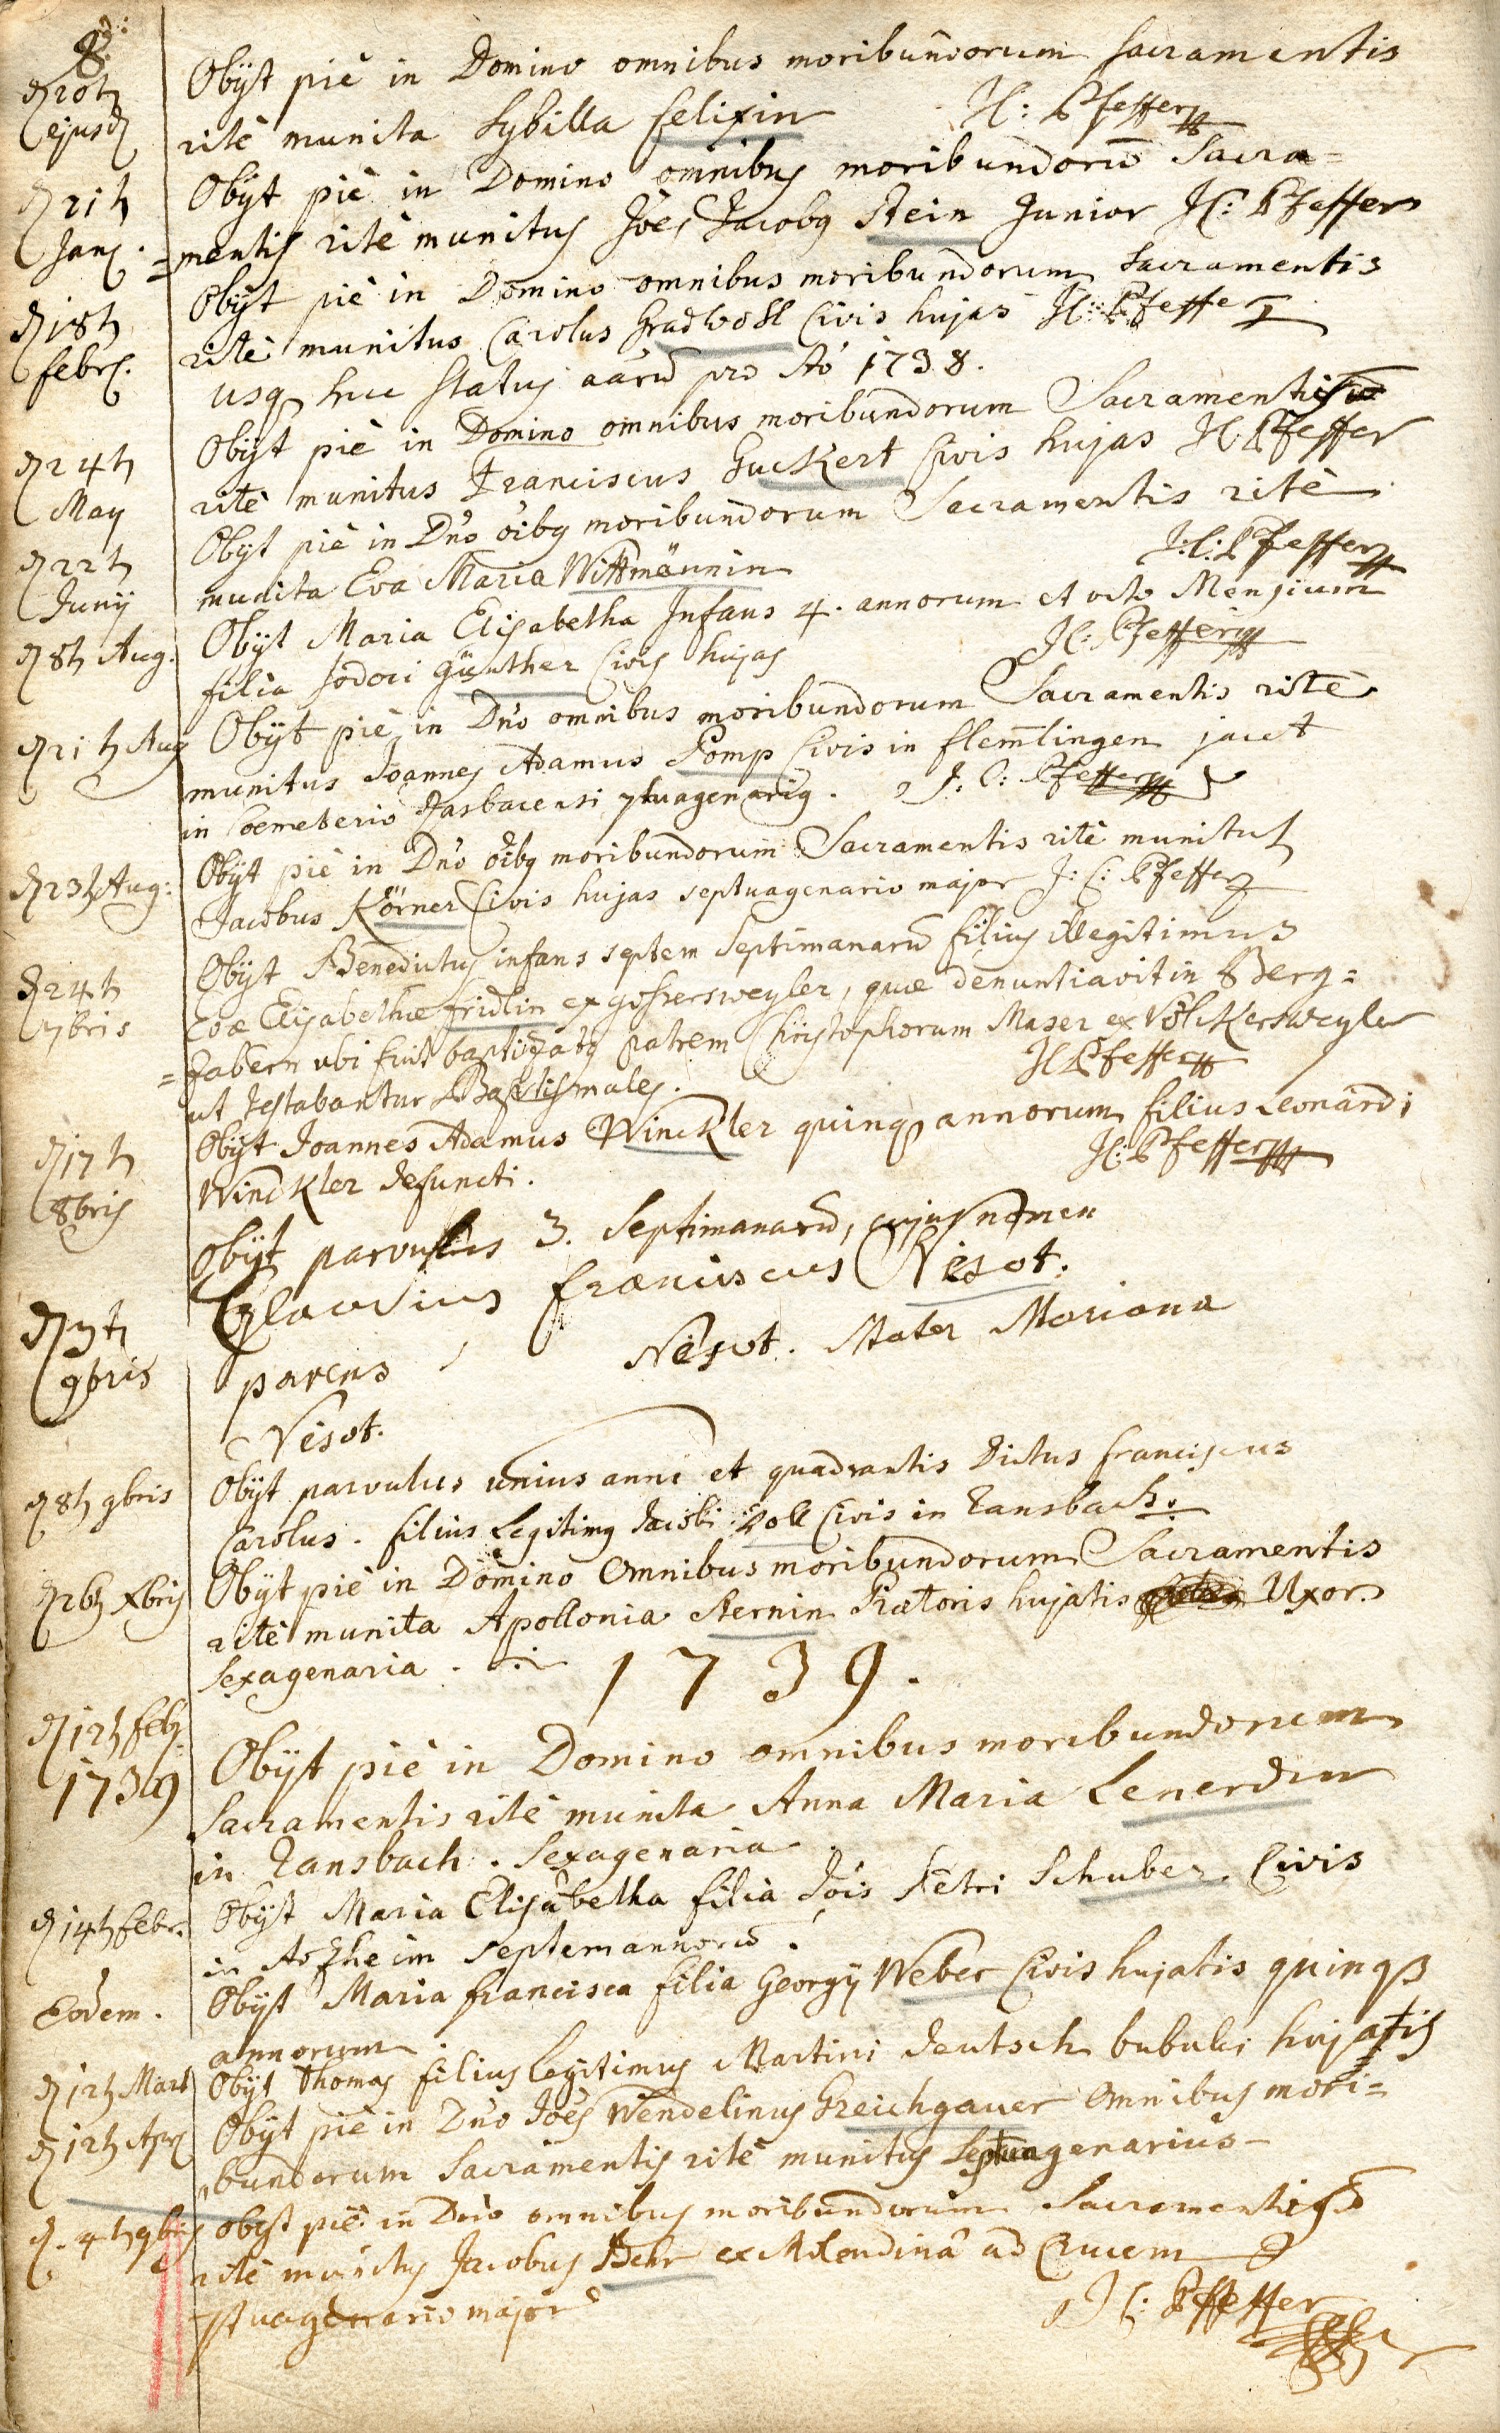 8.
d 20t
ejusd
Obÿt piè in Domino omnibus moribundorum sacramentis
ritè munita Sybilla felixin J C: Pfeffer
d 21t
Jan.
Obÿt piè in Domino omnibus moribundorū Sacra=
=mentis ritè munitus Joēs Jacobus Stein Junior J C: Pfeffer
d 18t
febr.
Obÿt piè in Domino omnibus moribundorum Sacramentis
ritè munitus Carolus Gradwohl Civis hujas J C: Pfeffer
usq huc status aāru pro Aō 1738.
d 24t
May
Obijt piè in Domino omnibus moribundorum Sacramentis
ritè munitus Franciscus Guckert Civis hujas J C Pfeffer
d 22t
Junÿ
Obÿt piè in Dno oibus moribundorum Sacramentis ritè
munita Eva Maria Wittmännin J: C: Pfeffer
d 8t Aug.
Obÿt Maria Elisabetha Infans 4. annorum et octo Mensium
filia Jodoci Günther Civis hujas J C: Pfeffer
d 21t Aug
Obÿt piè in Dno omnibus moribundorum Sacramentis ritè
munitus Joannes Adamus Pomp Civis in flemlingen jacet
in Coemeterio 7tuagenarius. J: C: Pfeffer
d 23t Aug:
Obÿt piè in Dno oibus moribundorum Sacramentis ritè munitus
Jacobus Körner Civis hujas septuagenario major J: C: Pfeffer
d 24t
7bris
Obÿt Benedictus infans septem Septimanarū filius illegitimus
Evæ Elisabethæ fridlin ex gossersweyler, quæ denuntiavit in Berg=
=zabern ubi fuit baptizatus patrem Christophorum Maser ex Völckersweyler
ut testabantur Baptismales. J C Pfeffer
d 17t
8bris
Obÿt Joannes Adamus Winckler quinq annorum filius Leonardi
Winckler defuncti. J C: Pfeffer
d 3t
9bris
Obÿt parvulus 3. septimanarū, cujus nomen
Claudius franciscus Nisot.
parens Nisot. Mater Mariana
Nisot.
d 8t 9bris
Obÿt parvulus unius anni et quadrantis dictus franciscus
Carolus. filius Legitimus Jacobi Zoll Civis in Ransbach.
d 26 Xbris
Obÿt piè in Domino Omnibus moribundorum Sacramentis
ritè munita Apollonia Sternin Prætoris hujatis Uxor.
Sexagenaria.
1739.
d 12t feb.
1739
Obÿt piè in Domino omnibus moribundorum
Sacramentis ritè munita Anna Maria Lenerdin
in Ransbach. Sexagenaria
d 14t febr.
Obÿt Maria Elisabetha filia Jois Petri Schuber Civis
in Arzheim septem annorū.
Eodem.
Obÿt Maria francisca filia Georgÿ Weber Civis hujatis quinq
annorum
d 12t Mart
Obÿt Thomas filius Legitimus Martini deutsch bubulci hujatis
d 12t Apr
Obÿt piè in Dno Joēs Wendelinus Greichgauer Omnibus mori=
bundorum Sacramentis ritè munitus Septuagenarius
d. 4t 9bris
obÿt piè in Dno omnibus moribundorum Sacramentis
ritè munitus Jacobus Behr ex Molendinâ ad Crucem
7tuagenario major J C: Pfeffer